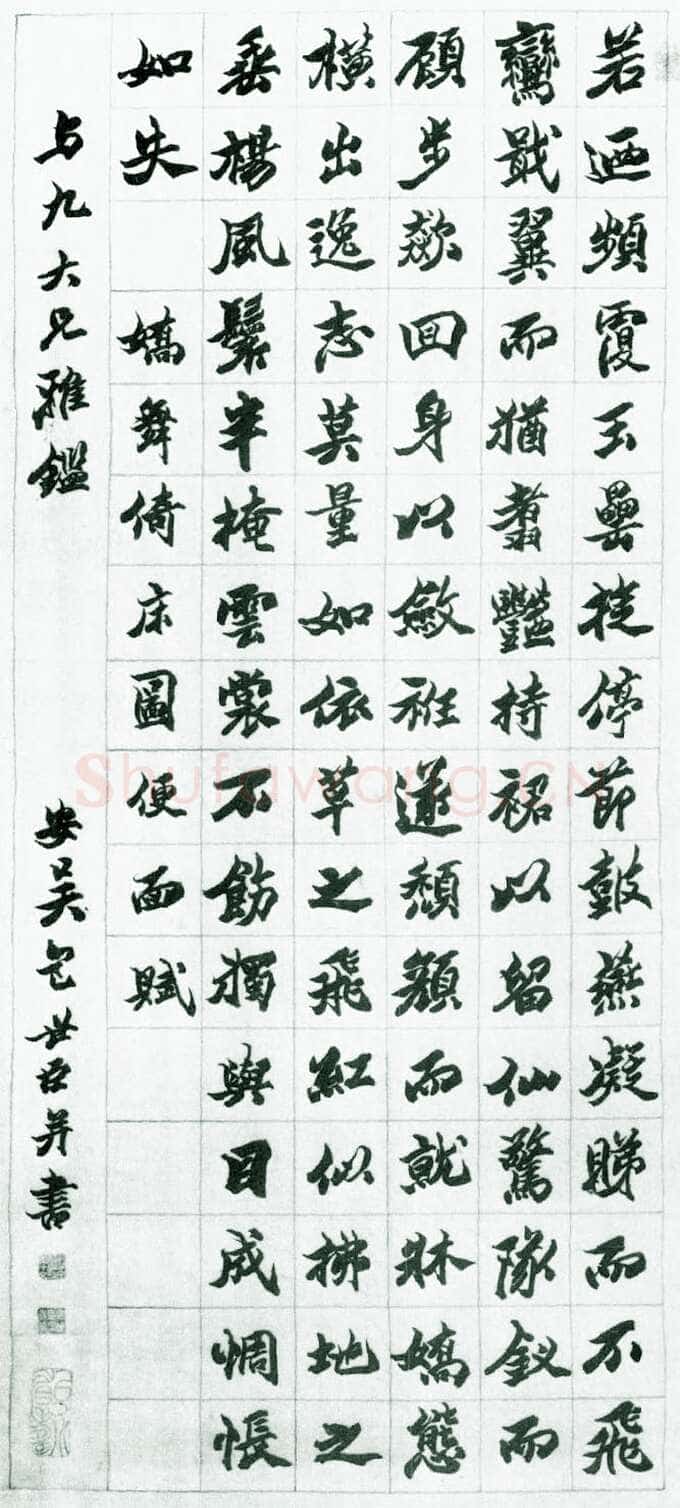 若迺頻霞玉罍徒停節鼓燕凝睇而不飛
鸞戢翼而猶翥豔持裾以留仙驚隊釵而
頋步欻回身以斂袵遂頽顏而就牀嬌態
橫出逸志莫量如依草之飛紅似拂地之
垂楊風鬟半掩雲裳不飭獨與目成惆悵
如失 嬌舞倚床圖便面賦
与九大兄雅鑑 安吴包世臣并書
Shufawang.CN